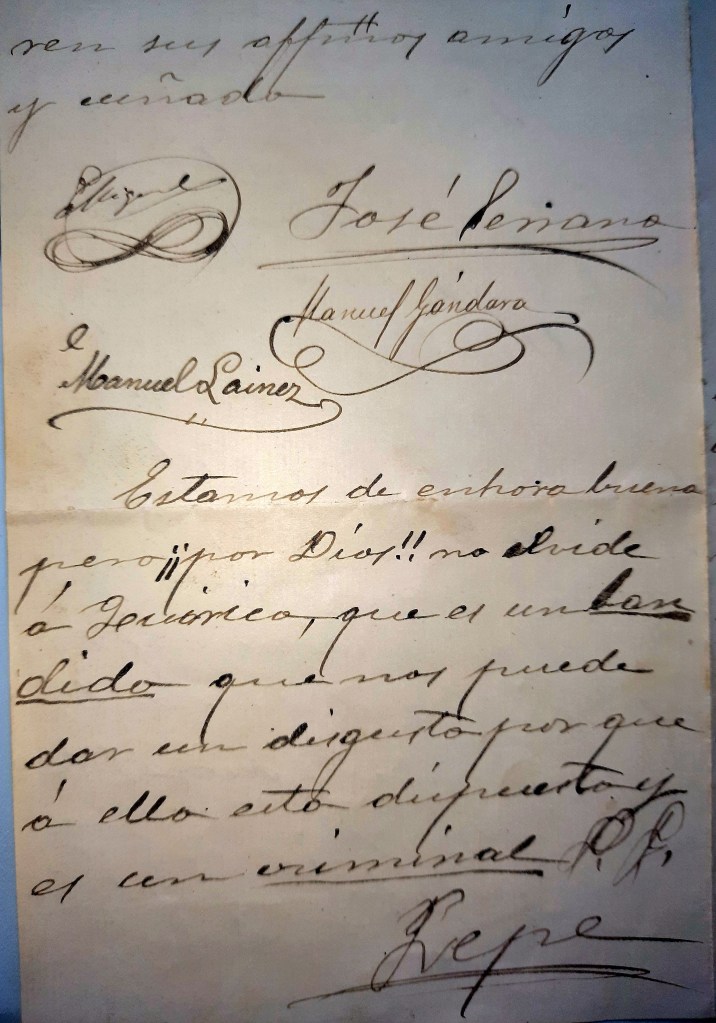 ren sus affmos amigos
y cuñado
José Seriano
Manuel Gándara
Manuel Lainez
Estamos de enhorabuena
pero ¡¡por Dios!! no olvide
á que es un ban
dido que nos puede
dar un disgusto por que
á ello está dispuesto y
es un criminal
Pepe